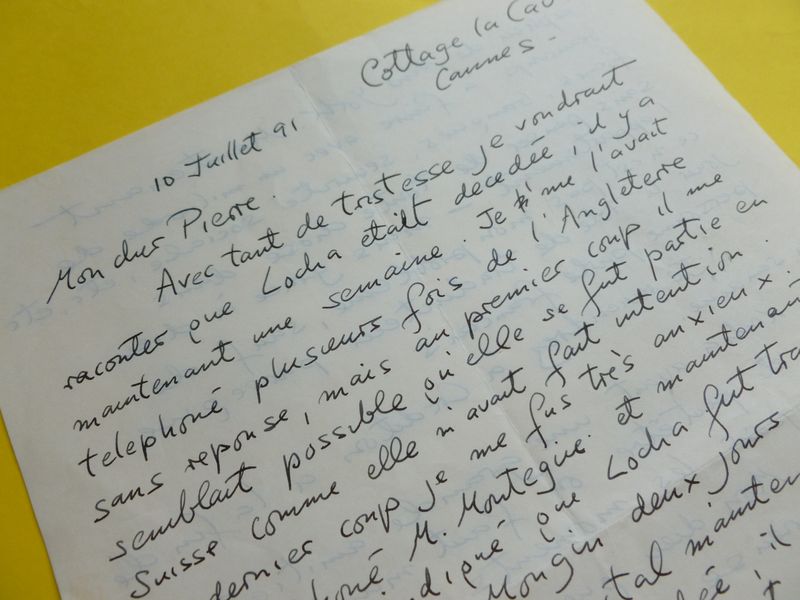 Cottage la Cau
Cannes -
10 Juillet 91
Mon cher Pierre.
Avec tant de tristesse je voudrait
raconter que Locha etait decedée, il y a
maintenant une semaine. Je l'avait
telephoné plusieurs fois de l'Angleterre
sans reponse, mais au premier coup il me
semblait possible qu'elle se fut partie en
Suisse comme elle m'avait fait intention.
dernier coup je me fus très anxieux.
honé M. Montegue. et maintenant
diqué que Locha fut tra
Mongin deux jours
tal mainten
ée, il